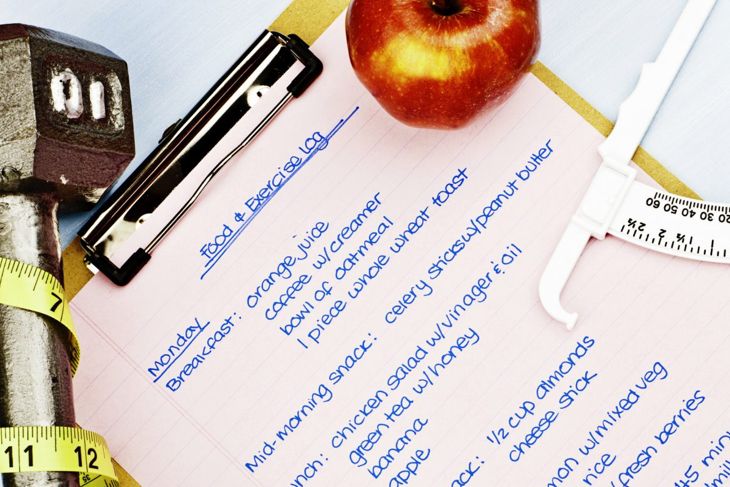 Food & Exercise Log
Monday
Breakfast: orange juice
coffee w/creamer
bowl of oatmeal
1 piece whole wheat toast
Mid-morning snack: celery sticks w/peanut butter
nch: chicken salad w/vinager & oil
green tea w/honey
banana
apple
ack: 1/2 cup almonds
cheese stick
mon w/mixed veg
rice
/fresh berries
45 min
mil
01
7
11 12
60 50 40 30 20 10
2½ 2 1½